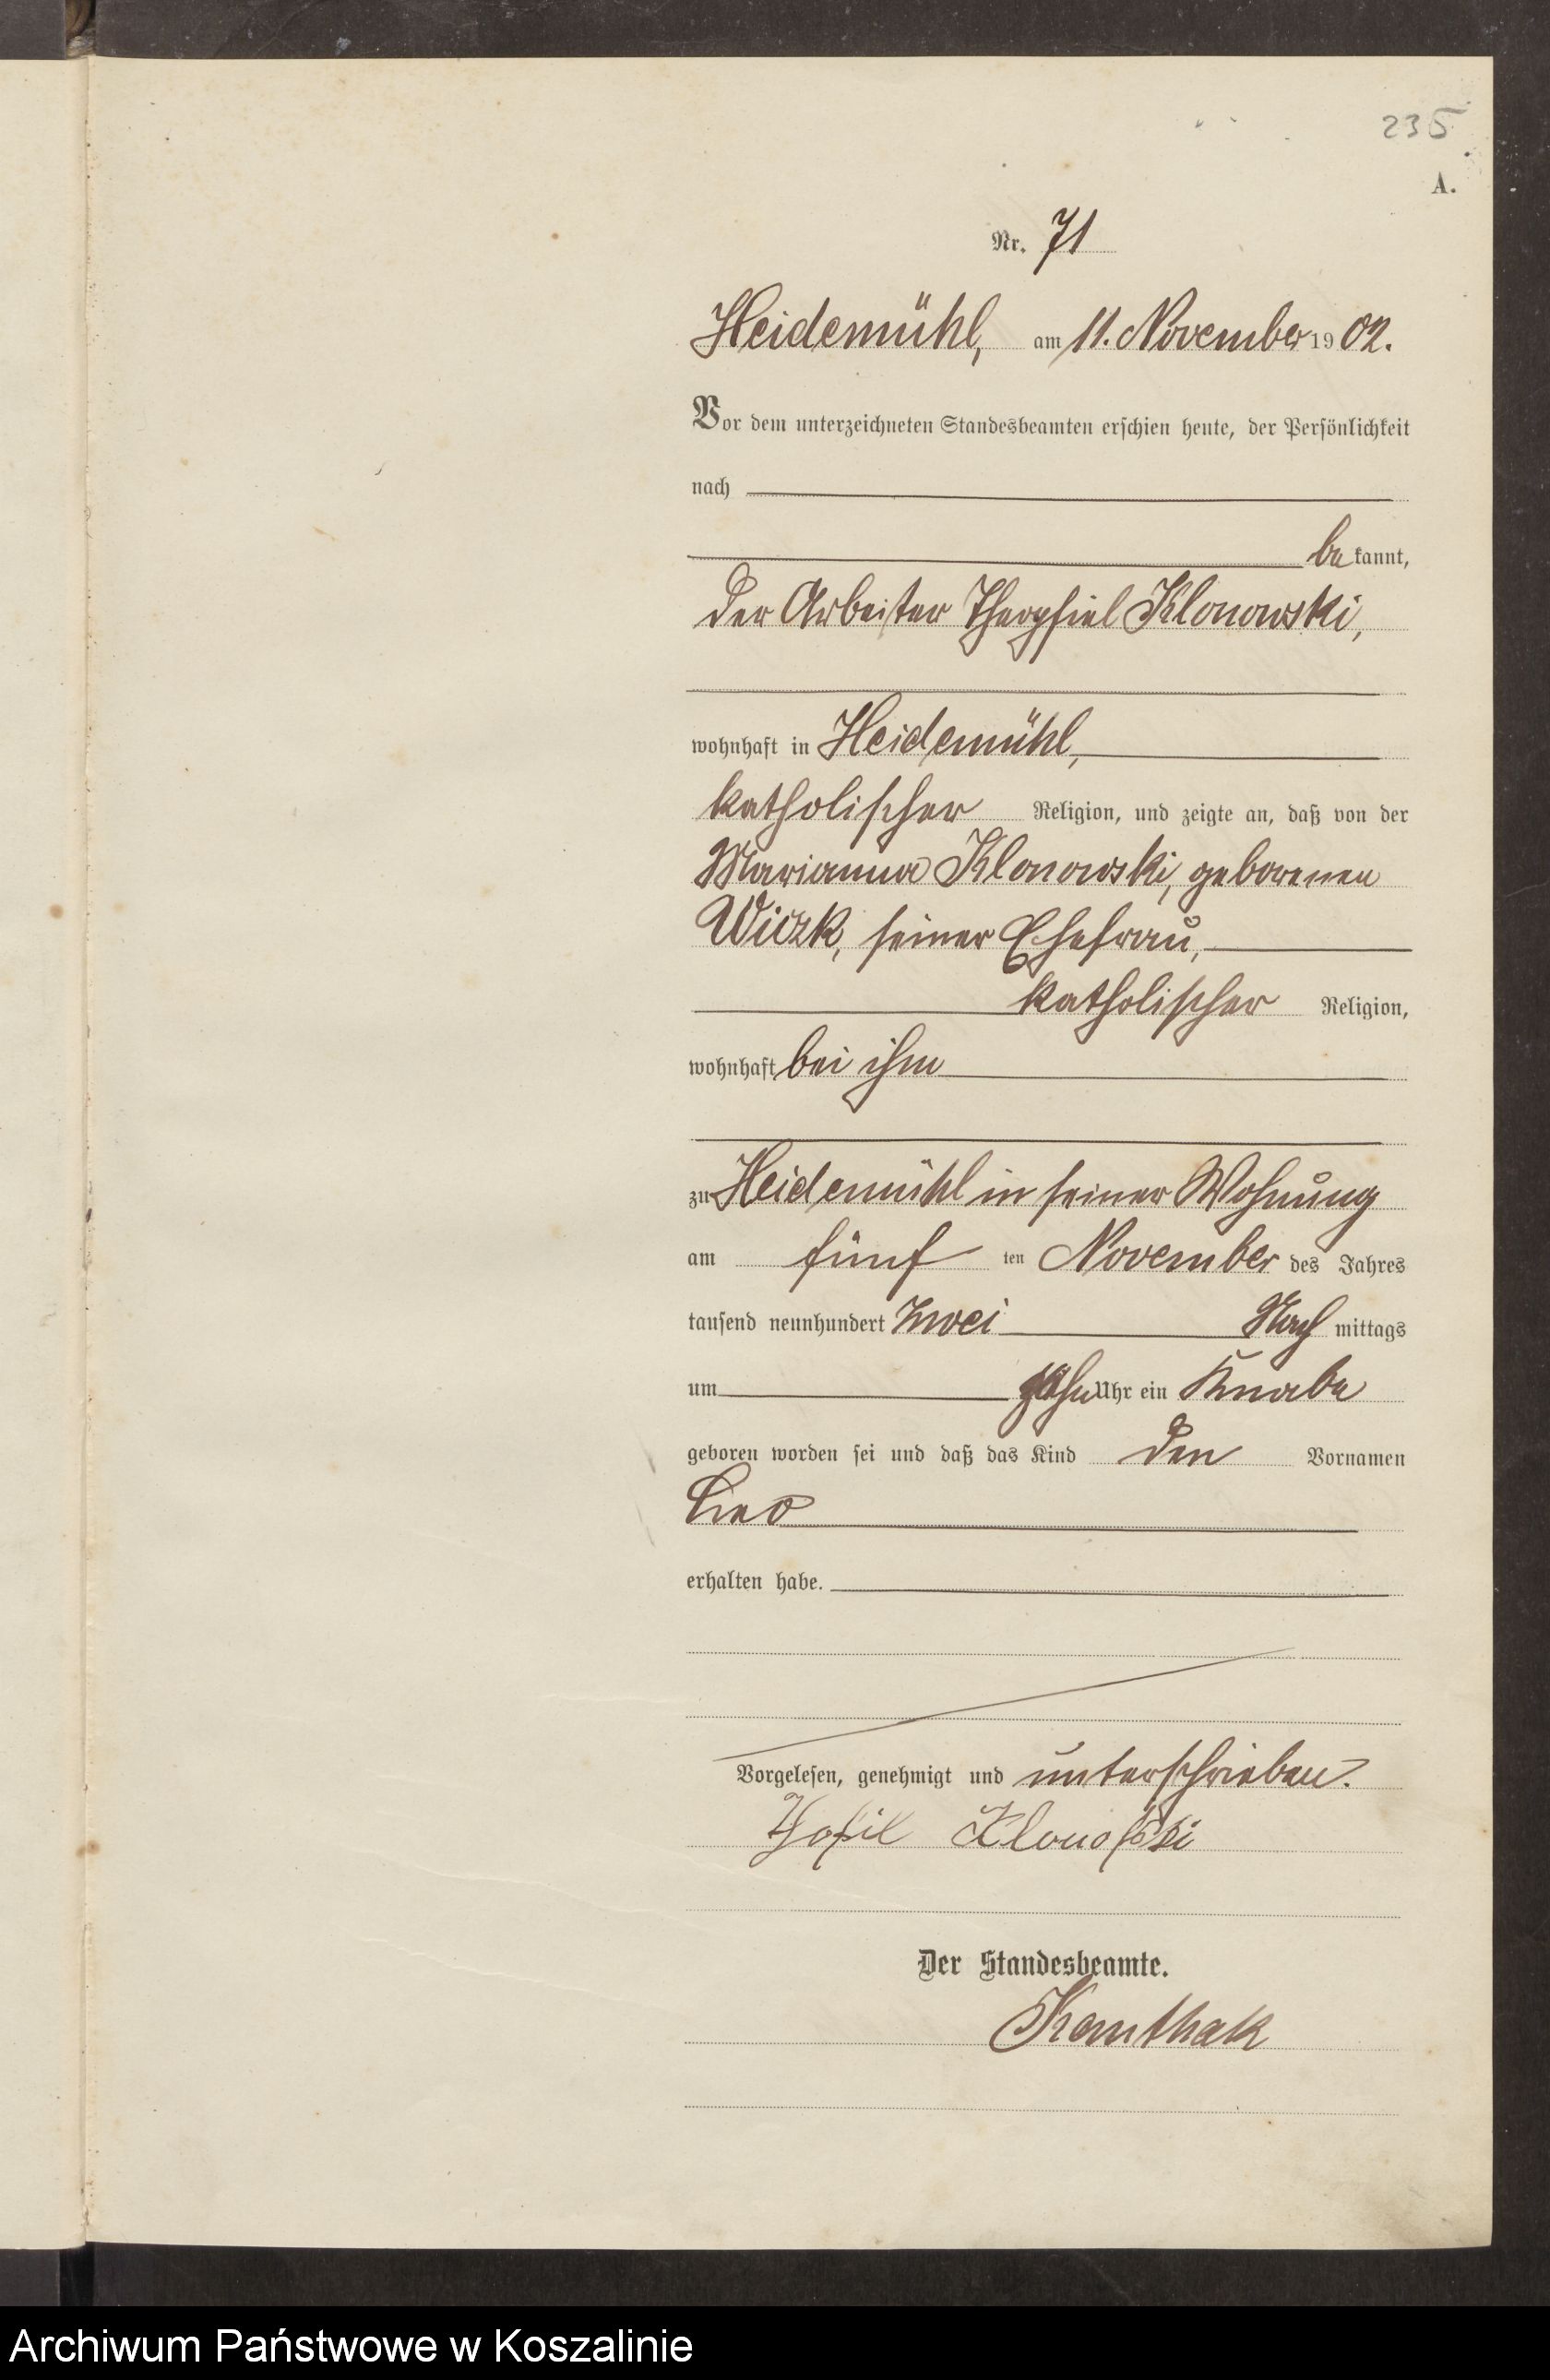 235
A.
Nr. 71
Heidemühl, am 11. November 1902.
Vor dem unterzeichneten Standesbeamten erschien heute, der Persönlichkeit
nach
be kannt,
der Arbeiter Theophiel Klonowski,
wohnhaft in Heidemühl,
katholischer Religion, und zeigte an, daß von der
Marianna Klonowski, geborenen
Wiczk, seiner Ehefrau,
katholischer Religion,
wohnhaft bei ihm
zu Heidemühl in seiner Wohnung
am fünf ten November des Jahres
tausend neunhundert zwei Nach mittags
um zehn Uhr ein Knabe
geboren worden sei und daß das Kind den Vornamen
Leo
erhalten habe.
Vorgelesen, genehmigt und unterschrieben.
Klonofski
Der Standesbeamte.
Kanthak
Archiwum Państwowe w Koszalinie